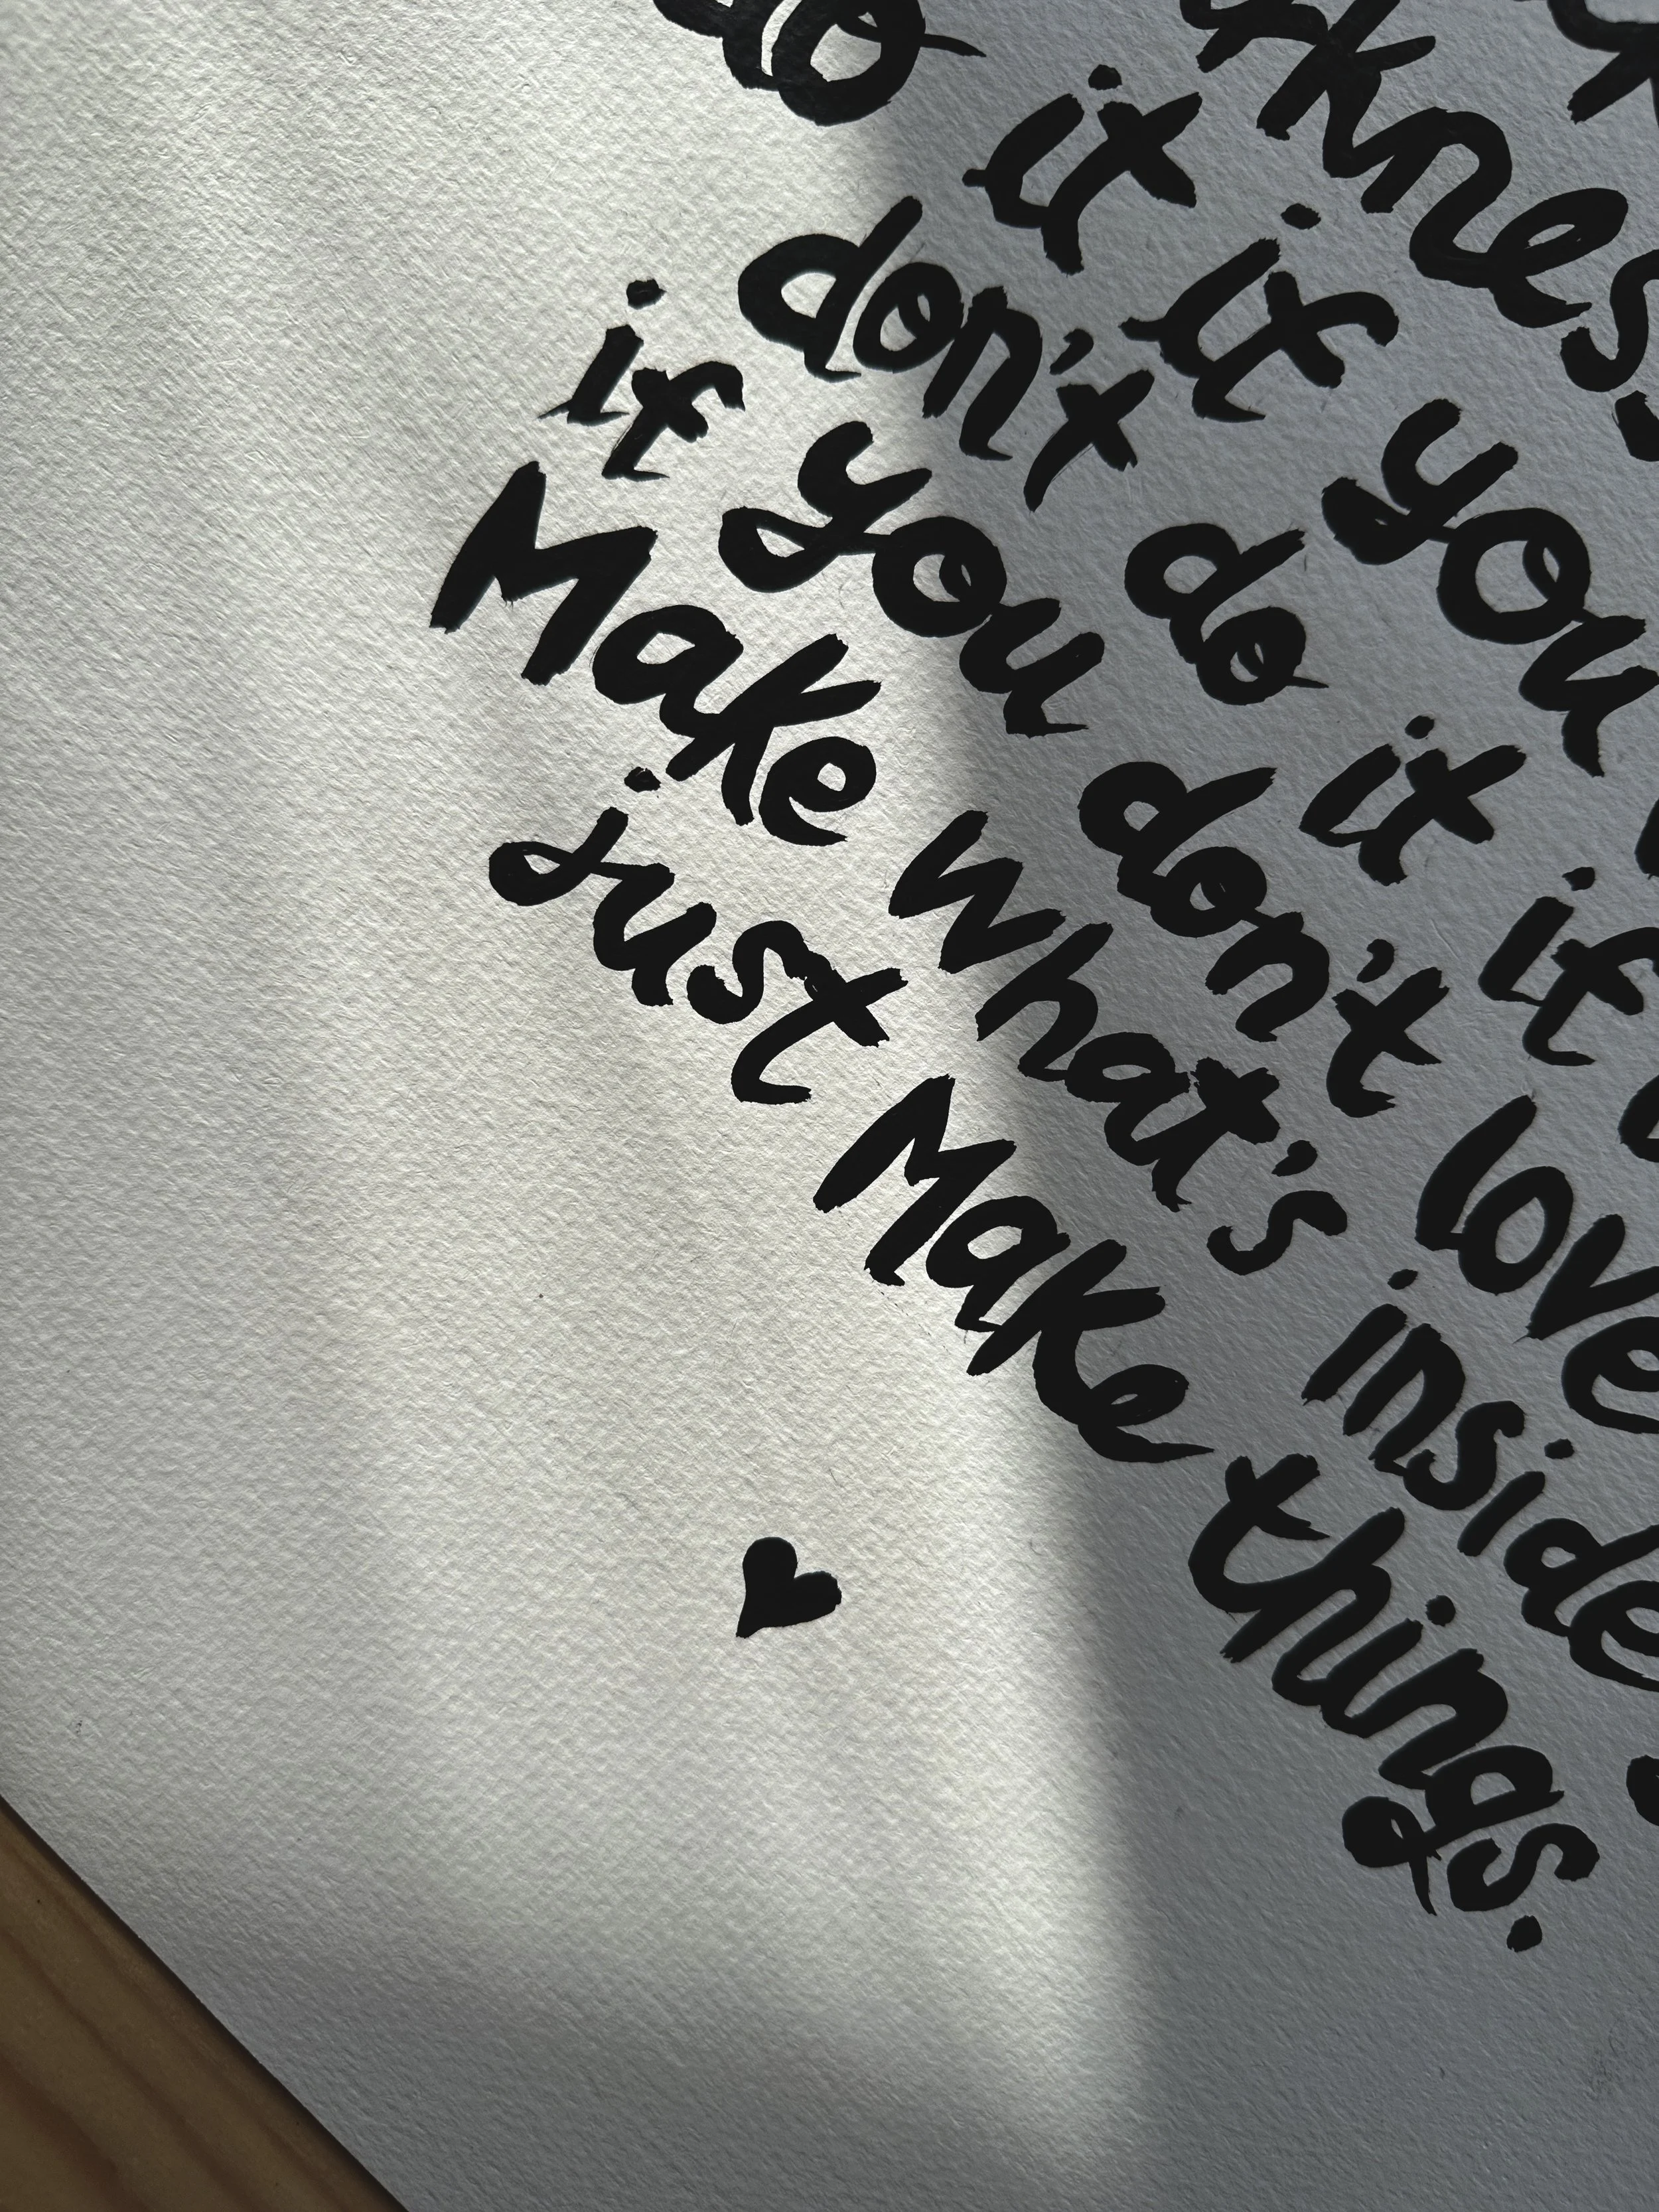 rkness
do it if you
don't do it if
if you don't love
Make what's inside
just Make things.